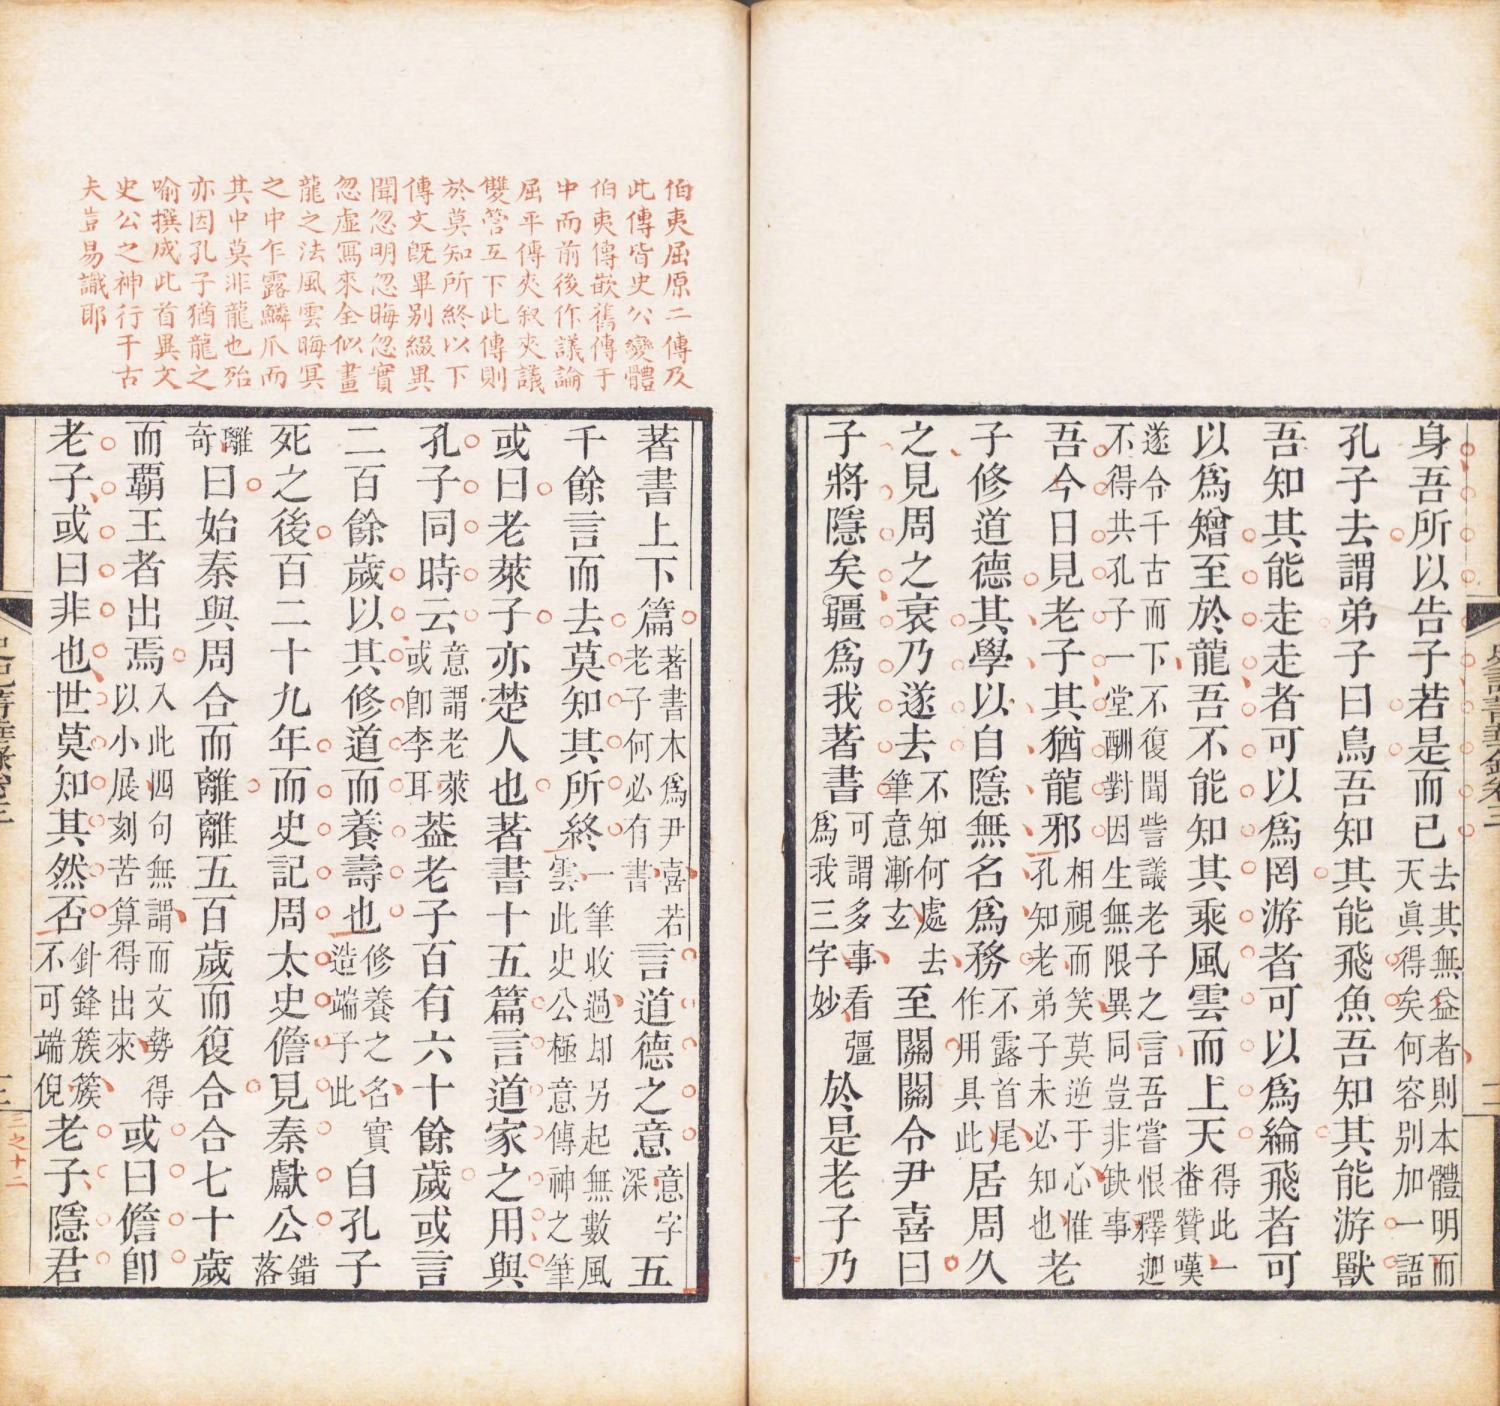 身吾所以告子若是而已去其無益者則本體明而
天眞得矣何容別加一語
孔子去謂弟子曰鳥吾知其能飛魚吾知其能游獸
吾知其能走走者可以爲罔游者可以爲綸飛者可
以爲矰至於龍吾不能知其乘風雲而上天得此一
番贊嘆
遂令千古而下不復聞訾議老子之言吾嘗恨釋迦
不得共孔子一堂酬對因生無限異同豈非缺事
吾今日見老子其猶龍邪相視而笑莫逆于心惟
孔知老弟子未必知也老
子修道德其學以自隱無名爲務不露首尾
作用具此居周久
之見周之衰乃遂去不知何處去
筆意漸玄至關關令尹喜曰
子將隱矣疆爲我著書可謂多事看彊
爲我三字妙於是老子乃
伯夷屈原二傳及
此傳皆史公變體
伯夷傳嵌舊傳于
中而前後作議論
屈平傳夾叙夾議
雙管互下此傳則
於莫知所終以下
傳文旣畢別綴異
聞忽明忽晦忽實
忽虛寫來全似畫
龍之法風雲晦冥
之中乍露鱗爪而
其中莫非龍也殆
亦因孔子猶龍之
喻撰成此首異文
史公之神行千古
夫豈易識耶
著書上下篇著書本爲尹喜若
老子何必有書言道德之意意字
深五
千餘言而去莫知其所終一筆收過却另起無數風
雲此史公極意傳神之筆
或曰老萊子亦楚人也著書十五篇言道家之用與
孔子同時云意謂老萊
或卽李耳葢老子百有六十餘歲或言
二百餘歲以其修道而養壽也修養之名實
造端于此自孔子
死之後百二十九年而史記周太史儋見秦獻公錯
落
離
奇曰始秦與周合而離離五百歲而復合合七十歲
而覇王者出焉入此四句無謂而文勢得
以小展刻苦算得出來或曰儋卽
老子或曰非也世莫知其然否針鋒簇簇
不可端倪老子隱君
三之十二